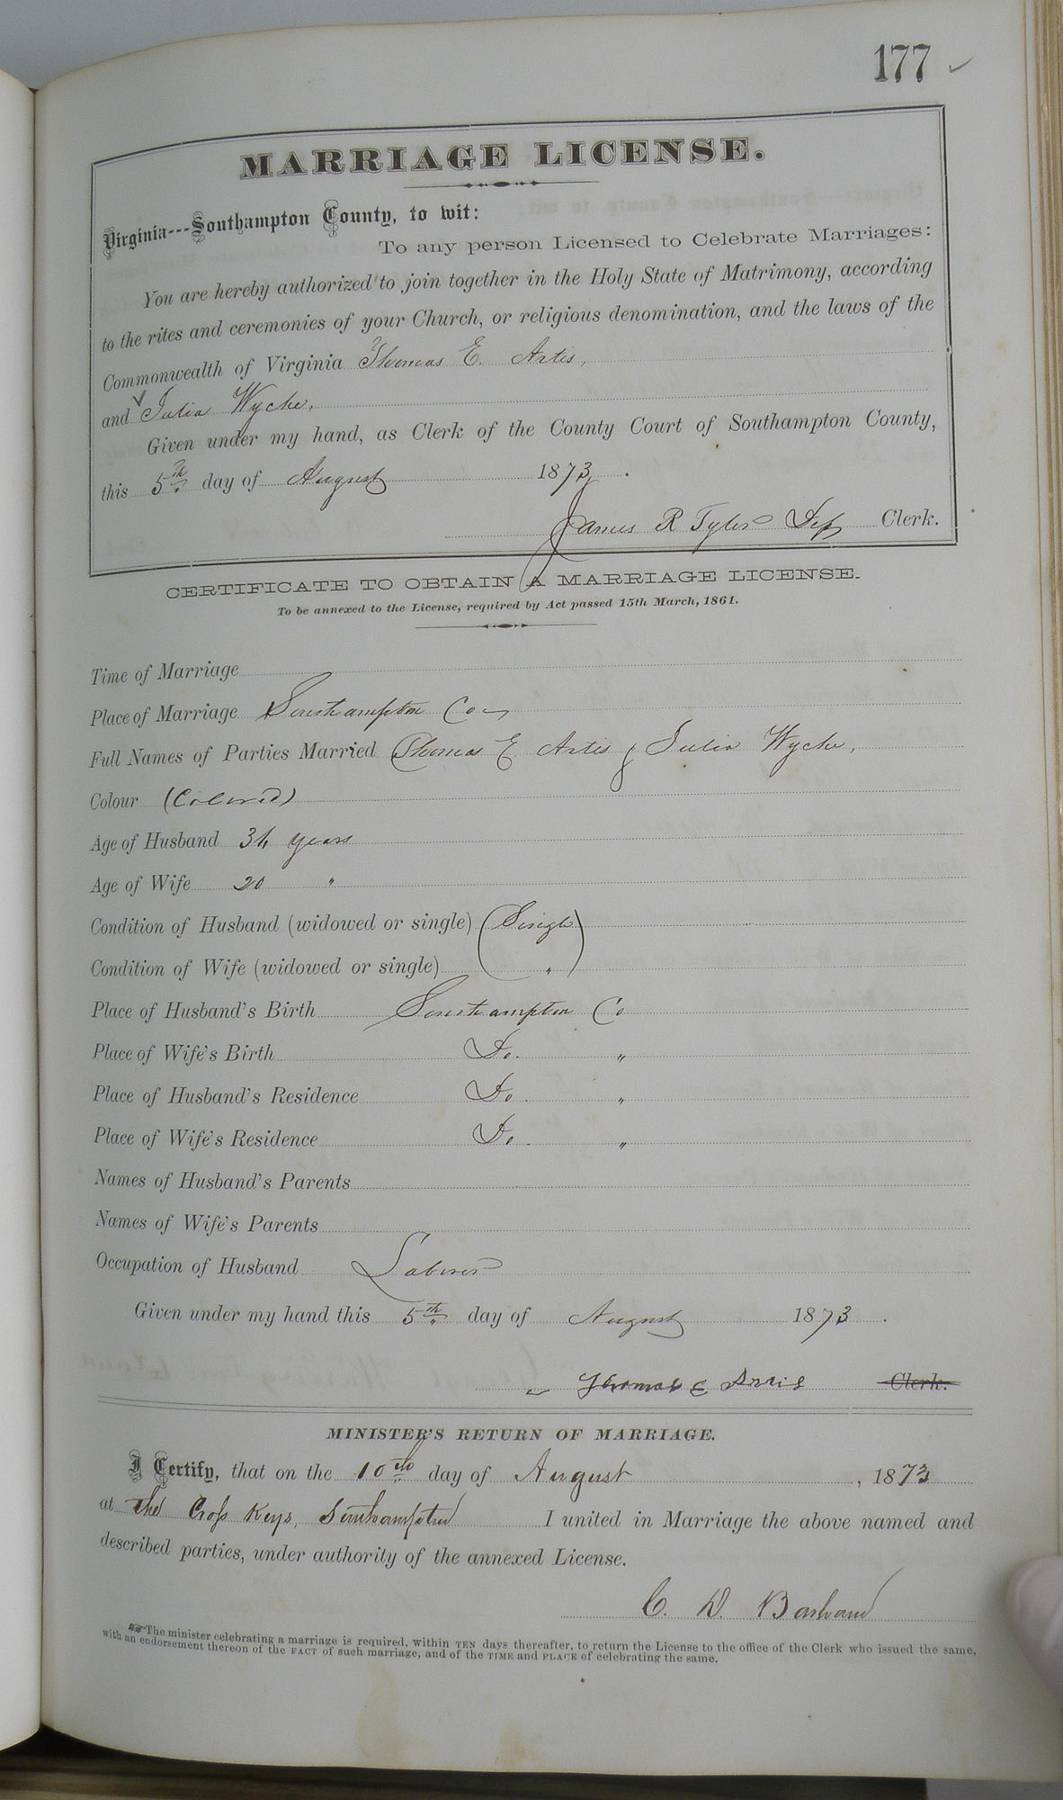 177 ✓
MARRIAGE LICENSE.
Virginia---Southampton County, to wit:
To any person Licensed to Celebrate Marriages:
You are hereby authorized to join together in the Holy State of Matrimony, according
to the rites and ceremonies of your Church, or religious denomination, and the laws of the
Commonwealth of Virginia Thomas E. Artis,
and Julia Wyche,
Given under my hand, as Clerk of the County Court of Southampton County,
this 5th day of August 1873.
James R Tyler Dep Clerk.
CERTIFICATE TO OBTAIN A MARRIAGE LICENSE.
To be annexed to the License, required by Act passed 15th March, 1861.
Time of Marriage
Place of Marriage Southampton Co
Full Names of Parties Married Thomas E Artis & Julia Wyche,
Colour (Colored)
Age of Husband years
Age of Wife 20 "
Condition of Husband (widowed or single) (Single)
Condition of Wife (widowed or single) "
Place of Husband's Birth Southampton Co
Place of Wife's Birth Do. "
Place of Husband's Residence Do. "
Place of Wife's Residence Do. "
Names of Husband's Parents
Names of Wife's Parents
Occupation of Husband Laborer
Given under my hand this 5th day of August 1873.
Thomas E Artis Clerk.
MINISTER'S RETURN OF MARRIAGE.
I Certify, that on the 10th day of August, 1873
at the Cross Keys, Southampton I united in Marriage the above named and
described parties, under authority of the annexed License.
C. D. Barham
The minister celebrating a marriage is required, within TEN days thereafter, to return the License to the office of the Clerk who issued the same,
with an endorsement thereon of the FACT of such marriage, and of the TIME and PLACE of celebrating the same.